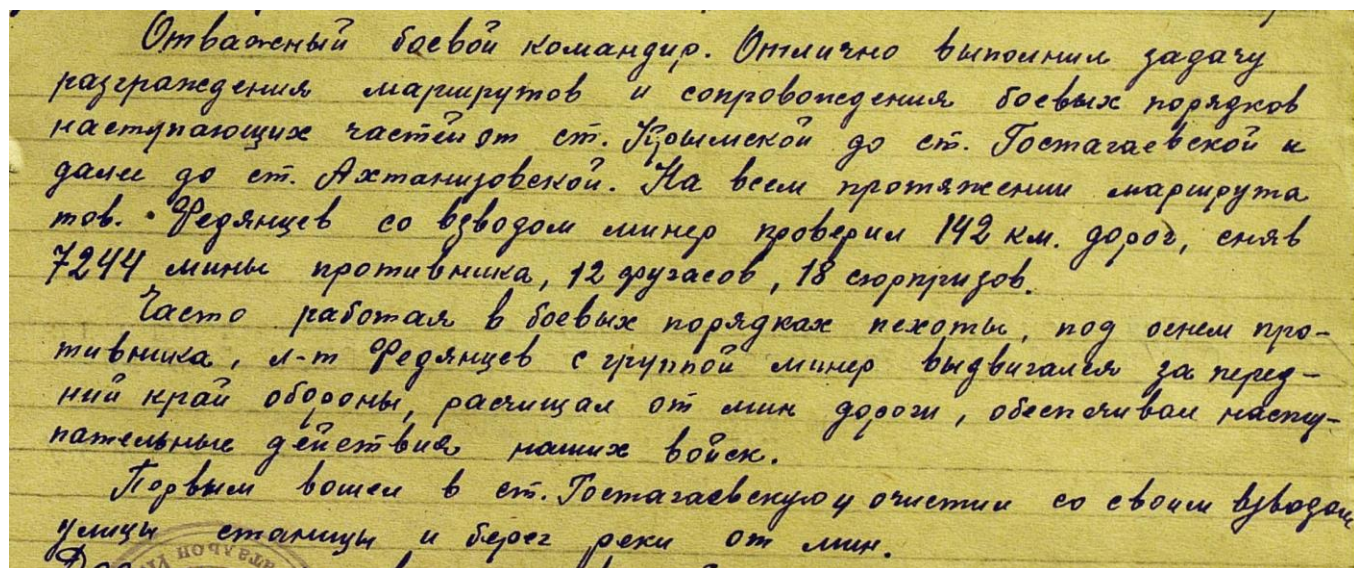 Отважный боевой командир. Отлично выполнил задачу
разграждения маршрутов и сопровождения боевых порядков
наступающих частей от ст. Крымской до ст. Гостагаевской и
далее до ст. Ахтанизовской. На всем протяжении маршрута
тов. Федянцев со взводом минер проверил 142 км. дорог, сняв
7244 мины противника, 12 фугасов, 18 сюрпризов.
Часто работая в боевых порядках пехоты, под огнем про-
тивника, л-т Федянцев с группой минер выдвигался за перед-
ний край обороны, расчищал от мин дороги, обеспечивая насту-
пательные действия наших войск.
Первым вошел в ст. Гостагаевскую и очистил со своим взводом
улицы станицы и берег реки от мин.